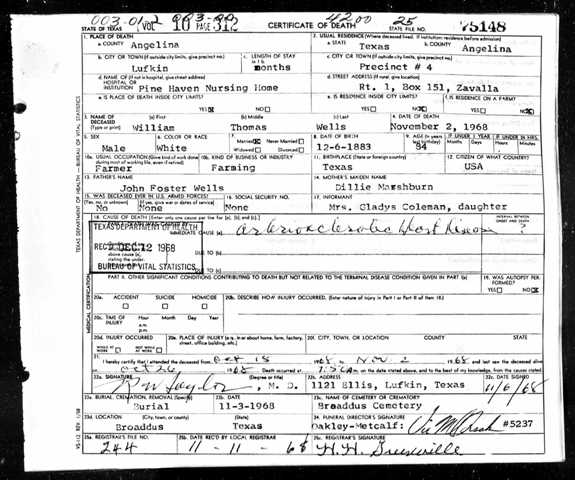 STATE OF TEXAS
CERTIFICATE OF DEATH
STATE FILE NO.
75148
1. PLACE OF DEATH
a. COUNTY Angelina
2. USUAL RESIDENCE (Where deceased lived. If institution: residence before admission)
a. STATE Texas
b. COUNTY Angelina
b. CITY OR TOWN (If outside city limits, give precinct no.)
Lufkin
c. LENGTH OF STAY
months
c. CITY OR TOWN (If outside city limits, give precinct no.)
Precinct # 4
d. NAME OF (If not in hospital, give street address)
HOSPITAL OR
INSTITUTION Pine Haven Nursing Home
d. STREET ADDRESS (If rural, give location)
Rt. 1, Box 151, Zavalla
e. IS PLACE OF DEATH INSIDE CITY LIMITS?
YES NO
e. IS RESIDENCE INSIDE CITY LIMITS?
YES NO
f. IS RESIDENCE ON A FARM?
YES NO
3. NAME OF DECEASED (Type or print)
(a) First William
(b) Middle Thomas
(c) Last Wells
4. DATE OF DEATH
November 2, 1968
5. SEX
Male
6. COLOR OR RACE
White
7. Married Never Married
Widowed Divorced
8. DATE OF BIRTH
12-6-1883
9. AGE (In years last birthday)
84
IF UNDER 1 YEAR
Months Days
IF UNDER 24 HRS.
Hours Min.
10a. USUAL OCCUPATION (Give kind of work done during most of working life, even if retired)
Farmer
10b. KIND OF BUSINESS OR INDUSTRY
Farming
11. BIRTHPLACE (State or foreign country)
Texas
12. CITIZEN OF WHAT COUNTRY?
USA
13. FATHER'S NAME
John Foster Wells
14. MOTHER'S MAIDEN NAME
Dillie Marshburn
15. WAS DECEASED EVER IN U.S. ARMED FORCES?
(If yes, give war or dates of service)
No None
16. SOCIAL SECURITY NO.
None
17. INFORMANT
Mrs. Gladys Coleman, daughter
18. CAUSE OF DEATH [Enter only one cause per line for (a), (b), and (c).]
INTERVAL BETWEEN ONSET AND DEATH
IMMEDIATE CAUSE (a) Arteriosclerotic Heart Disease ?
TEXAS DEPARTMENT OF HEALTH
REC'D DEC 12 1968
BUREAU OF VITAL STATISTICS
DUE TO (b)
DUE TO (c)
PART II. OTHER SIGNIFICANT CONDITIONS CONTRIBUTING TO DEATH BUT NOT RELATED TO THE TERMINAL DISEASE CONDITION GIVEN IN PART I(a)
19. WAS AUTOPSY PERFORMED?
YES NO
20a. ACCIDENT SUICIDE HOMICIDE
20b. DESCRIBE HOW INJURY OCCURRED. (Enter nature of injury in Part I or Part II of item 18.)
20c. TIME OF INJURY
Hour Month Day Year
a.m.
p.m.
20d. INJURY OCCURRED
WHILE AT WORK NOT WHILE AT WORK
20e. PLACE OF INJURY (e.g., in or about home, farm, factory, street, office building, etc.)
20f. CITY, TOWN, OR LOCATION COUNTY STATE
21. I hereby certify that I attended the deceased from Oct 18 1968 to Nov 2 1968 and last saw the deceased alive
on Oct 26 1968. Death occurred at m. on the date stated above, and to the best of my knowledge, from the causes stated.
22a. SIGNATURE (Degree or title)
R W Taylor, M. D.
22b. ADDRESS
1121 Ellis, Lufkin, Texas
22c. DATE SIGNED
11/6/68
23a. BURIAL, CREMATION, REMOVAL (Specify)
Burial
23b. DATE
11-3-1968
23c. NAME OF CEMETERY OR CREMATORY
Broaddus Cemetery
23d. LOCATION (City, town, or county) (State)
Broaddus Texas
24. FUNERAL DIRECTOR'S SIGNATURE
Oakley-Metcalf: #5237
25a. REGISTRAR'S FILE NO.
244
25b. DATE REC'D BY LOCAL REGISTRAR
11-11-68
25c. REGISTRAR'S SIGNATURE
TEXAS DEPARTMENT OF HEALTH — BUREAU OF VITAL STATISTICS
MEDICAL CERTIFICATION